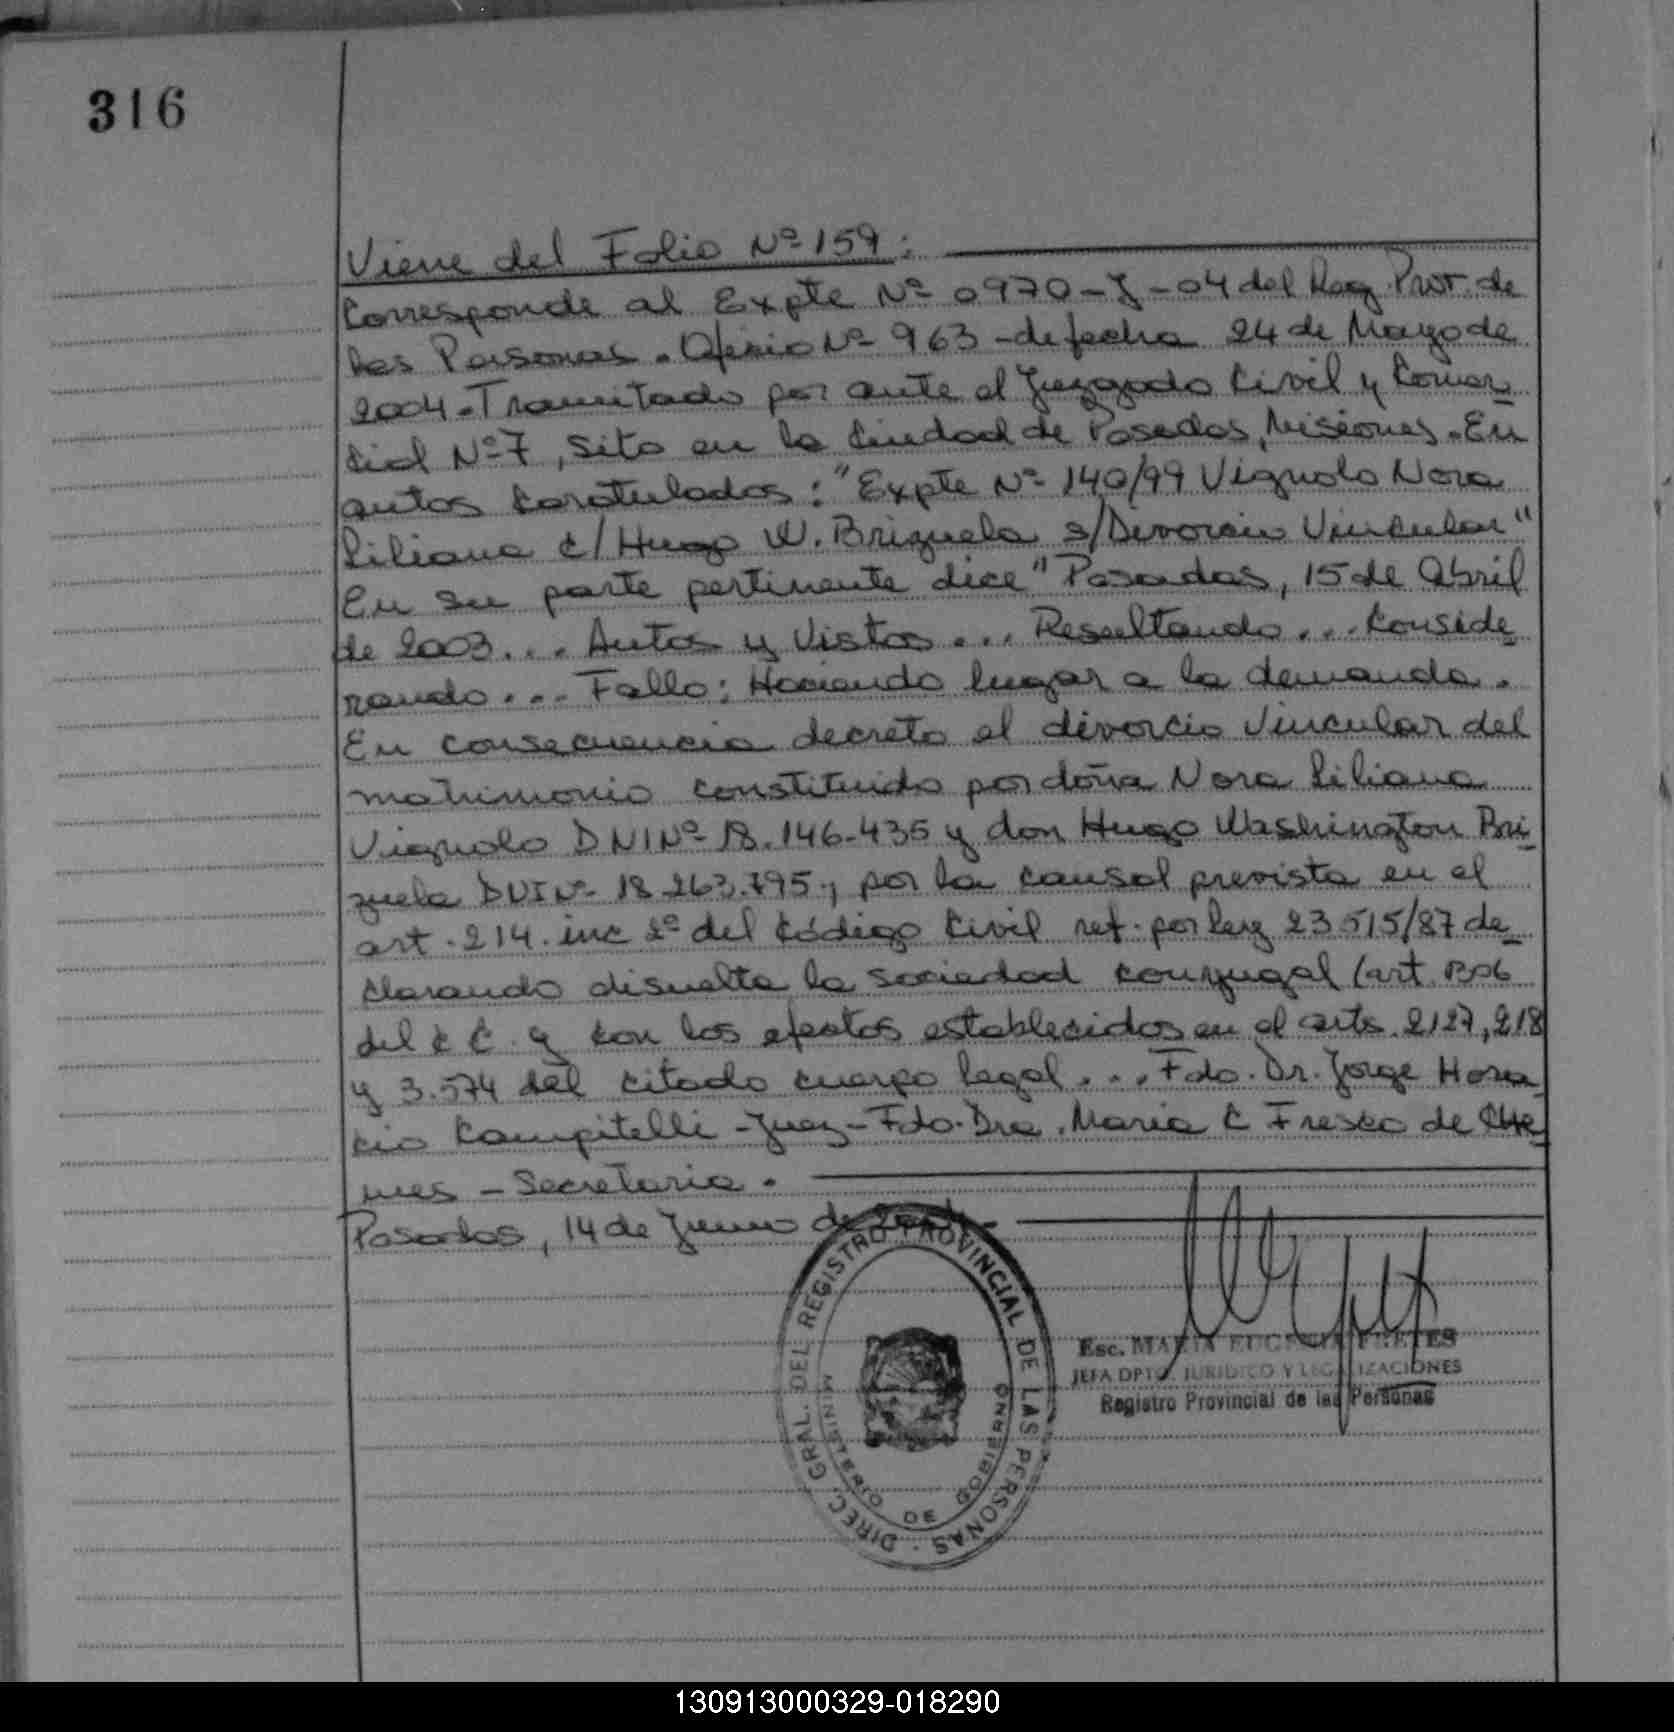 316
Viene del Folio Nº 159:
Corresponde al Expte Nº 0970-J-04 del Reg. Prov. de
las Personas. Oficio Nº 963 - de fecha 24 de Mayo de
2004. Tramitado por ante el Juzgado Civil y Comer
cial Nº 7, sito en la Ciudad de Posadas, Misiones. En
autos Caratulados: "Expte Nº 140/99 Vignolo Nora
Liliana c/ Hugo W. Brizuela s/ Divorcio Vincular"
En su parte pertinente dice "Posadas, 15 de Abril
de 2003... Autos y Vistos... Resultando... Conside
rando... Fallo: Haciendo lugar a la demanda.
En consecuencia decreto el divorcio Vincular del
matrimonio constituido por doña Nora Liliana
Vignolo DNI Nº 18.146.435 y don Hugo Washington Bri
zuela DNI Nº 18.263.795, por la causal prevista en el
art. 214. inc 2º del Código Civil ref. por ley 23515/87 de
clarando disuelta la sociedad conyugal (art. 1306
del C C. y con los efectos establecidos en el arts. 2127, 218
y 3.574 del citado cuerpo legal... Fdo. Dr. Jorge Hora
cio Campitelli - Juez - Fdo. Dra. Maria C Fresco de Che
mes - Secretaria.
Posadas, 14 de Junio de 2004.-
DIREC. GRAL. DEL REGISTRO PROVINCIAL DE LAS PERSONAS
MINISTERIO DE GOBIERNO
Esc. MARIA EUGENIA
JEFA DPTO. JURIDICO Y LEGALIZACIONES
Registro Provincial de las Personas
130913000329-018290